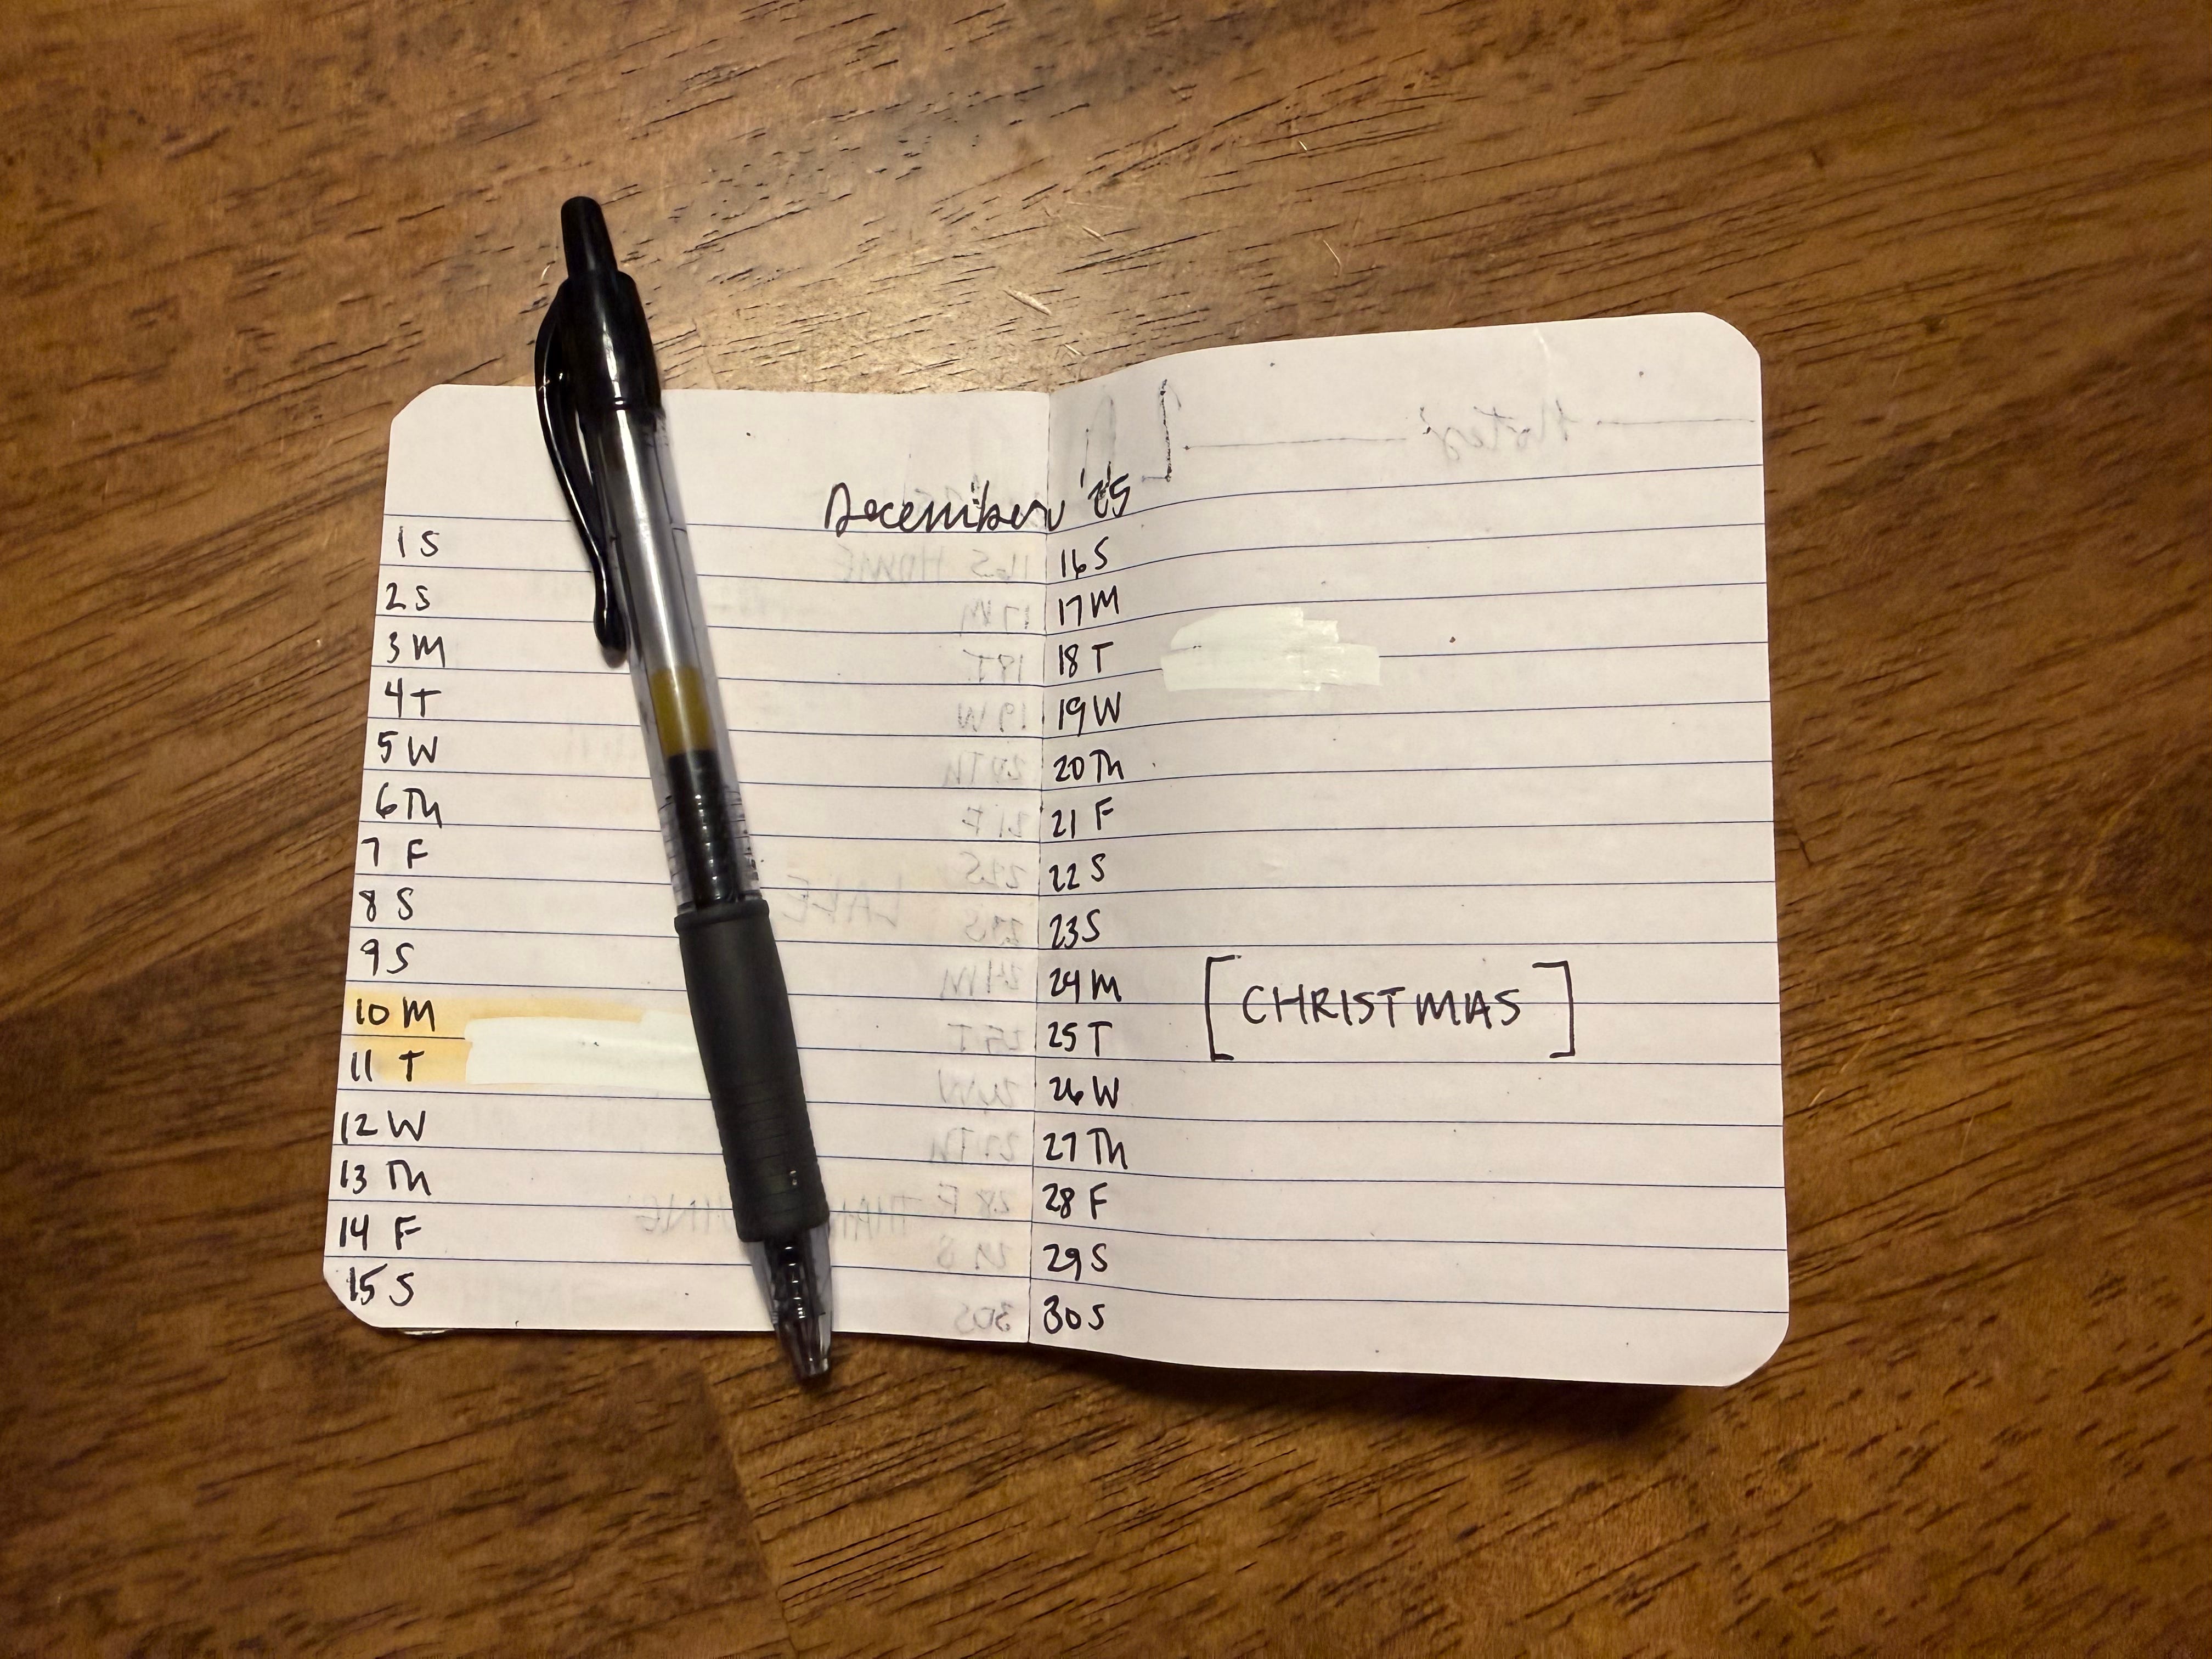 December '25
1 S
2 S
3 M
4 T
5 W
6 Th
7 F
8 S
9 S
10 M
11 T
12 W
13 Th
14 F
15 S
16 S
17 M
18 T
19 W
20 Th
21 F
22 S
23 S
24 M
[CHRISTMAS]
25 T
26 W
27 Th
28 F
29 S
30 S